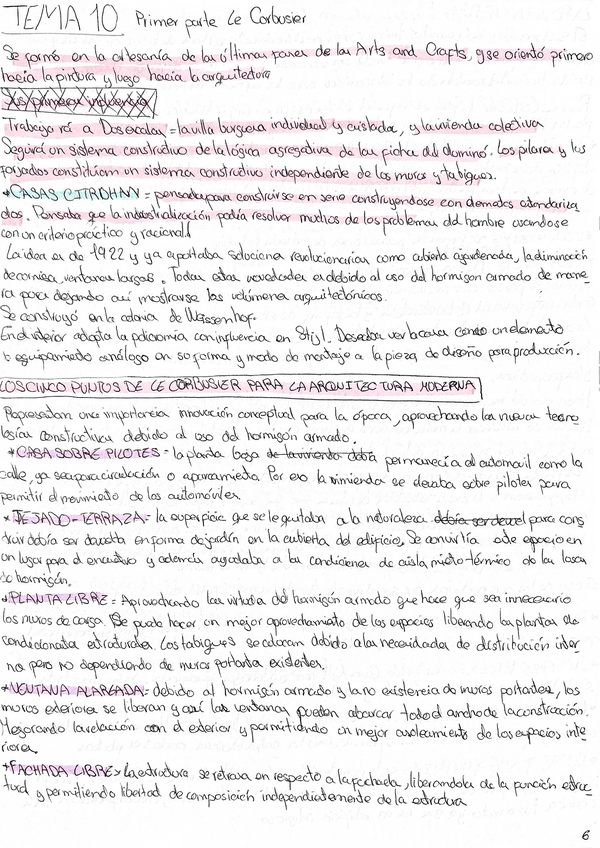 TEMA 10 Primer parte Le Corbusier
Se formó en la artesanía de las últimas fases de las Arts and Crafts, y se orientó primero
hacia la pintura y luego hacia la arquitectura
Sus primeras influencias
Trabajará a Dos escalas = la villa burguesa individual y aislada, y la vivienda colectiva
Seguirá un sistema constructivo de la lógica agregativa de las fichas del dominó. Los pilares y los
forjados constituían un sistema constructivo independiente de los muros y tabiques.
*CASAS CITROHAN = pensadas para construirse en serie construyendose con elementos estandariza
dos. Pensaba que la industrialización podía resolver muchos de los problemas del hombre usandose
con un criterio práctico y racional.
La idea es de 1922 y ya aportaba soluciones revolucionarias como cubierta ajardinada, la eliminación
de cornisa, ventanas largas. Todas estas novedades es debido al uso del hormigón armado de mane
ra pura dejando así mostrarse los volúmenes arquitectónicos.
Se construyó en la colonia de Weissenhof.
En el interior adapta la policromía con influencia en Stijl. Deseaba ver la casa como un elemento
o equipamiento análogo en su forma y modo de montaje a la pieza de diseño para producción.
LOS CINCO PUNTOS DE LE CORBUSIER PARA LA ARQUITECTURA MODERNA
Representan una importancia innovación conceptual para la época, aprovechando las nuevas tecno
logías constructivas debido al uso del hormigón armado.
*CASA SOBRE PILOTES = la planta baja de la vivienda debía permanecía al automóvil como la
calle, ya sea para circulación o aparcamiento. Por eso la vivienda se elevaba sobre pilotes para
permitir el movimiento de los automóviles
*TEJADO-TERRAZA = la superficie que se le quitaba a la naturaleza para cons
truir debía ser devuelta en forma de jardín en la cubierta del edificio. Se convertía este espacio en
un lugar para el encuentro y además ayudaba a las condiciones de aisla miento térmico de las losas
de hormigón.
*PLANTA LIBRE = Aprovechando las virtudes del hormigón armado que hace que sea innecesario
los muros de carga. Se puede hacer un mejor aprovechamiento de los espacios liberando las plantas de
condicionantes estructurales. Los tabiques se colocan debido a las necesidades de distribución inter
na pero no dependiendo de muros portantes existentes.
*VENTANA ALARGADA = debido al hormigón armado y la no existencia de muros portantes, los
muros exteriores se liberan y así las ventanas pueden abarcar todo el ancho de la construcción.
Mejorando la relación con el exterior y permitiendo un mejor asoleamiento de los espacios inte
riores.
*FACHADA LIBRE > la estructura se retrasa en respecto a la fachada, liberandola de la función estruc
tural y permitiendo libertad de composición independientemente de la estructura
6